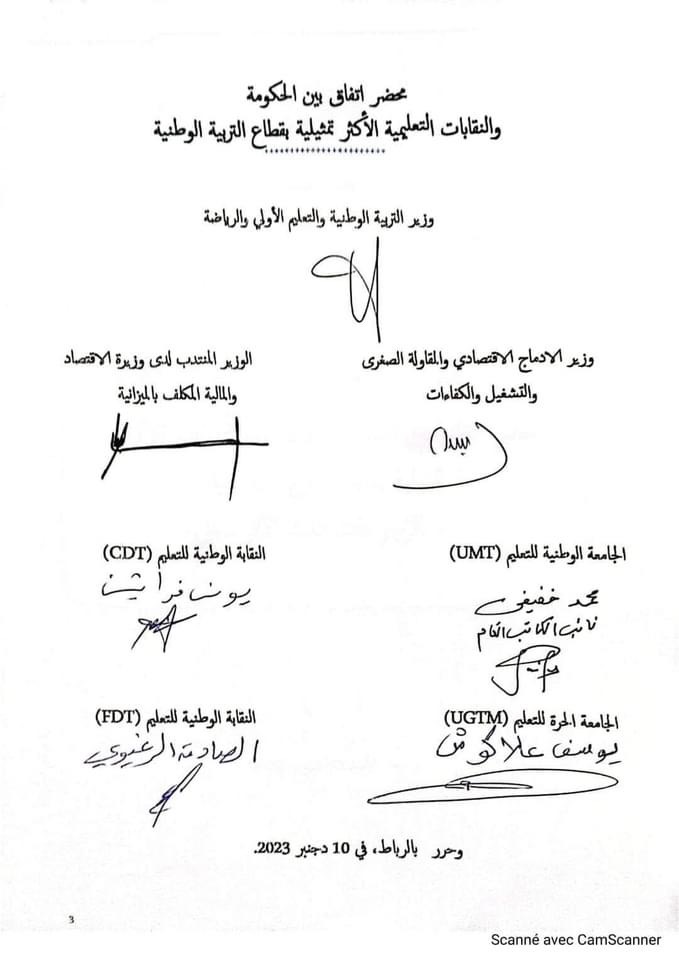 محضر اتفاق بين الحكومة
والنقابات التعليمية الأكثر تمثيلية بقطاع التربية الوطنية
وزير التربية الوطنية والتعليم الأولي والرياضة
وزير الادماج الاقتصادي والمقاولة الصغرى
والتشغيل والكفاءات
الوزير المنتدب لدى وزيرة الاقتصاد
والمالية المكلف بالميزانية
الجامعة الوطنية للتعليم (UMT)
محمد خفيفي
نائب الكاتب العام
النقابة الوطنية للتعليم (CDT)
يونس فراشين
الجامعة الحرة للتعليم (UGTM)
يوسف علاكوش
النقابة الوطنية للتعليم (FDT)
الصادق الرغيوي
وحرر بالرباط، في 10 دجنبر 2023.
3
Scanné avec CamScanner